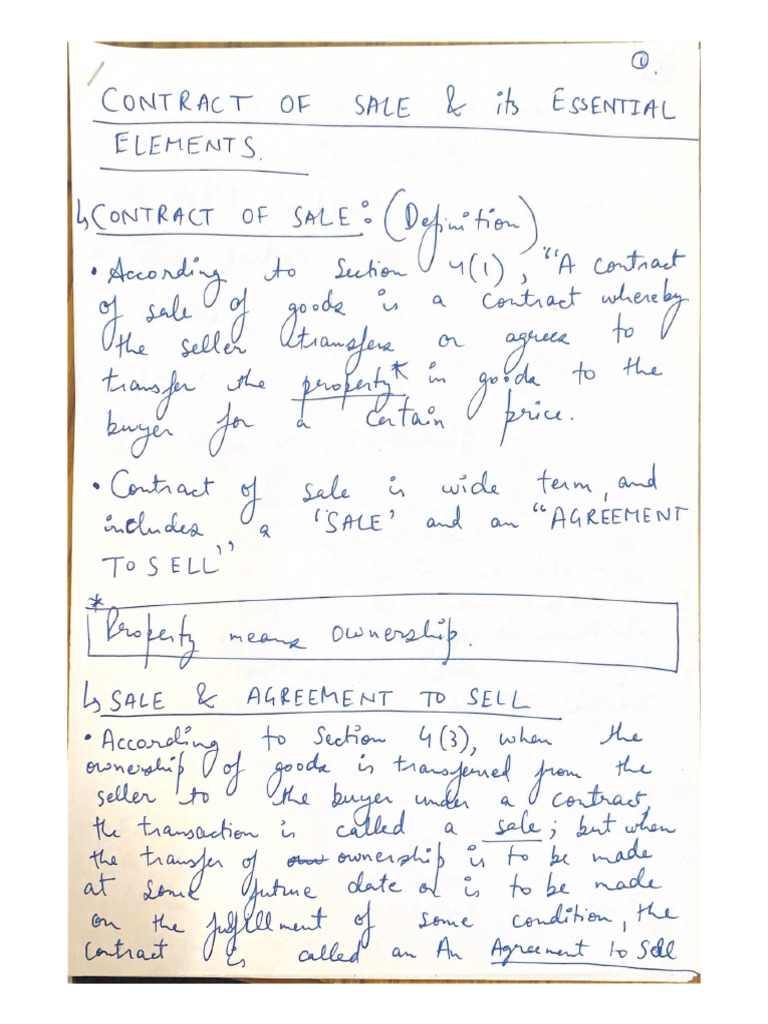 ①.
CONTRACT OF SALE & its ESSENTIAL
ELEMENTS.
↳ CONTRACT OF SALE: (Definition)
• According to Section 4(1), "A contract
of sale of goods is a contract whereby
the seller transfers or agrees to
transfer the property* in goods to the
buyer for a certain price.
• Contract of sale is wide term, and
includes a 'SALE' and an "AGREEMENT
TO SELL"
*
Property means ownership.
↳ SALE & AGREEMENT TO SELL
• According to Section 4(3), when the
ownership of goods is transferred from the
seller to the buyer under a contract,
the transaction is called a sale; but when
the transfer of ownership is to be made
at some future date or is to be made
on the fulfillment of some condition, the
contract is called an An Agreement to Sell